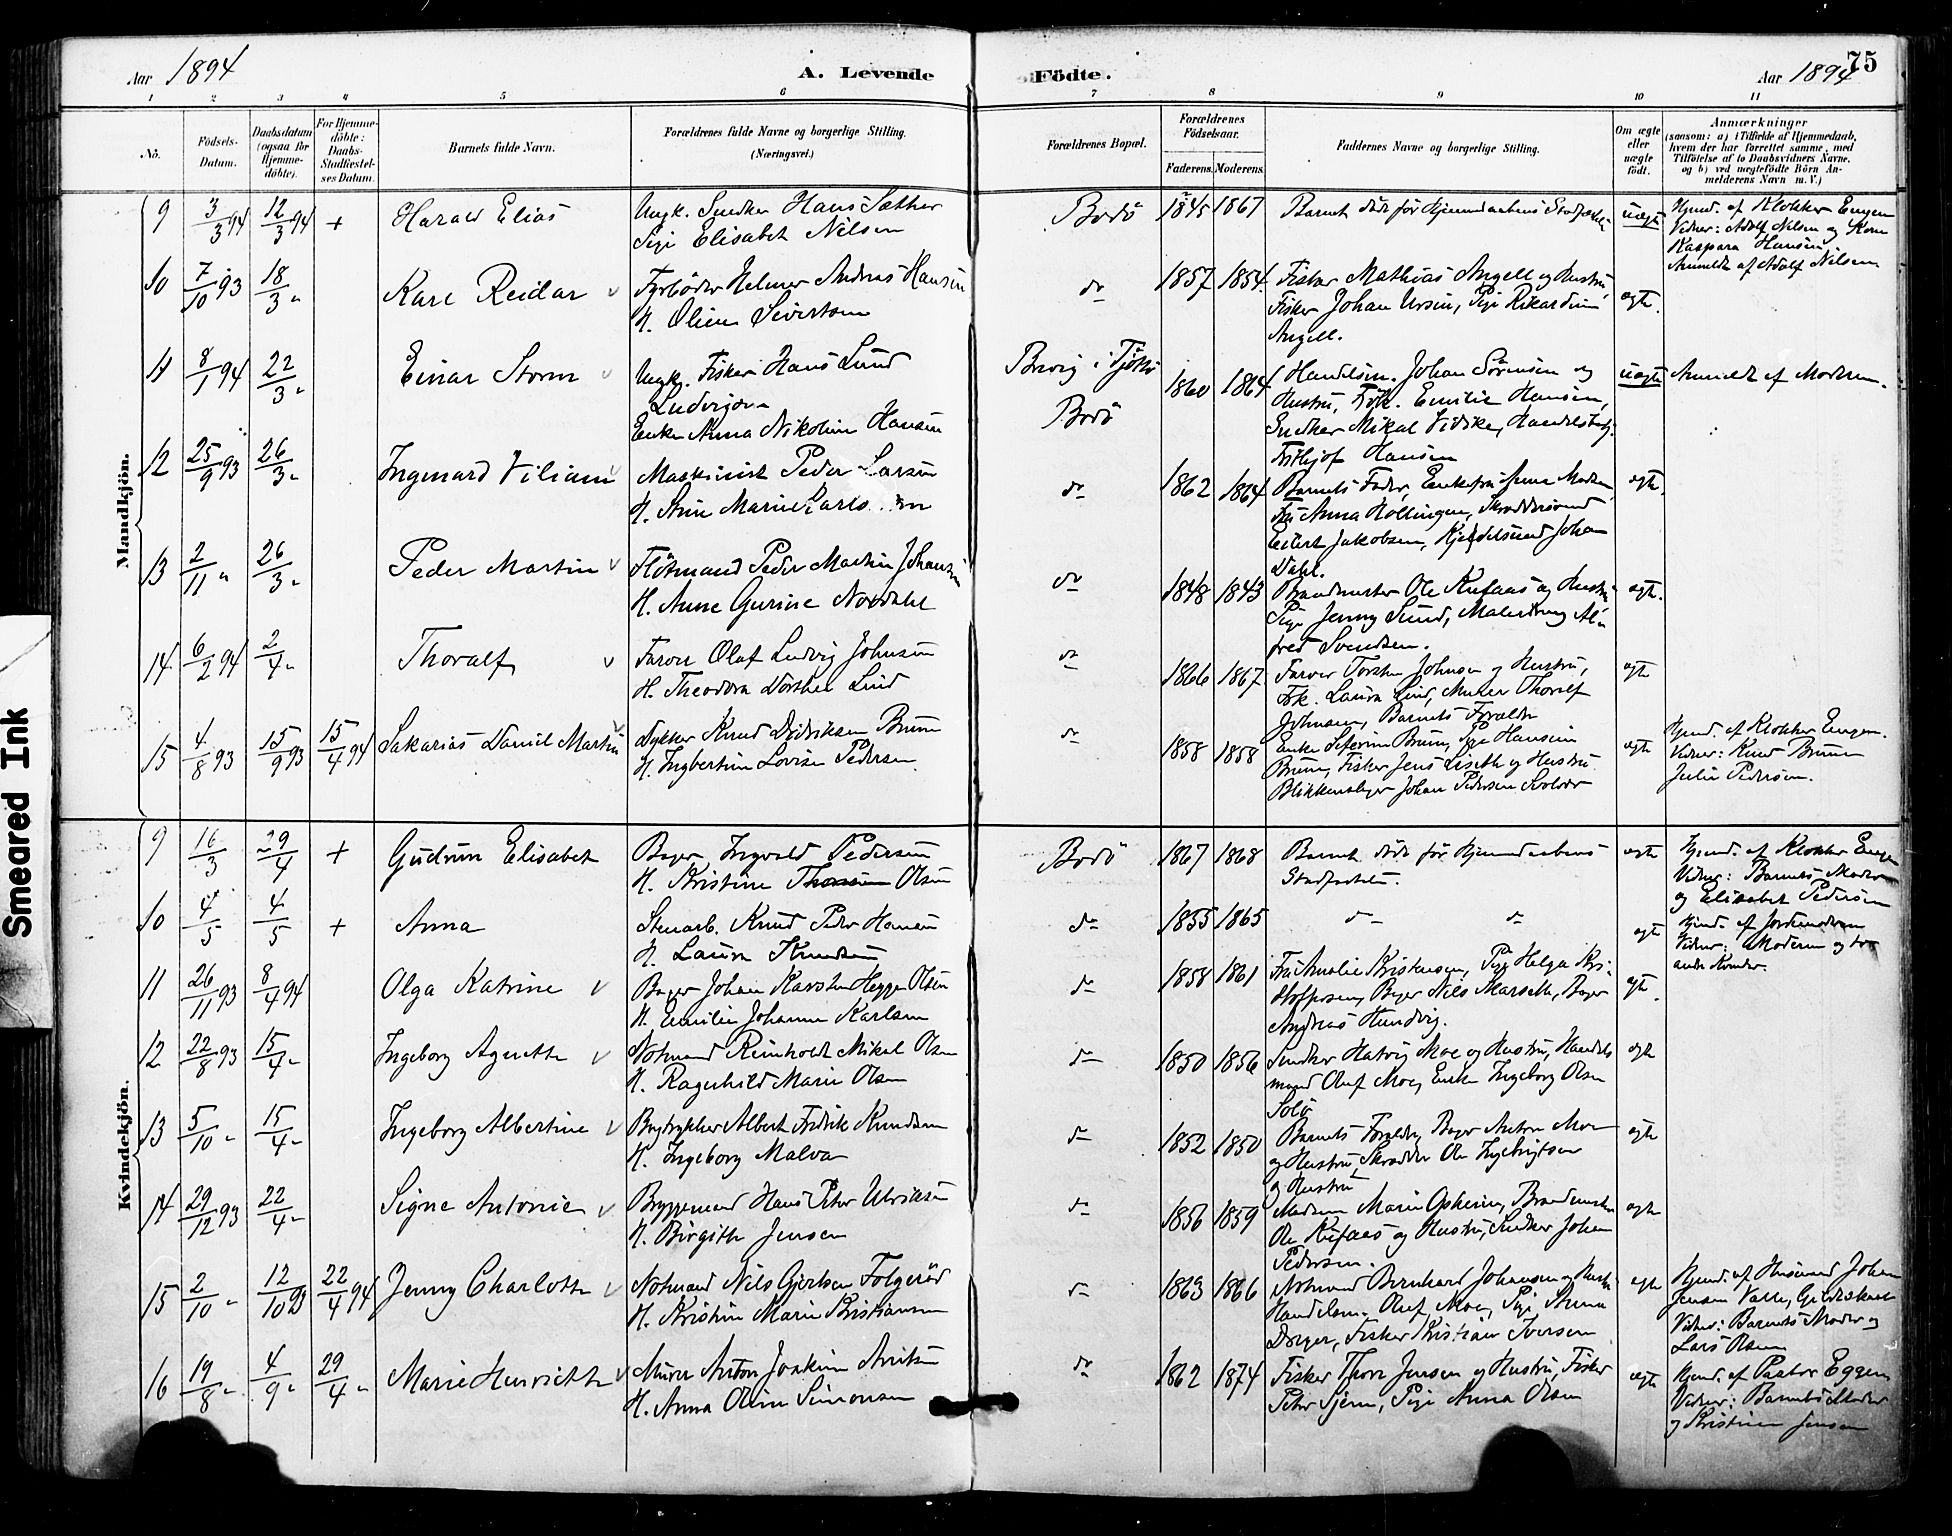 Smeared Ink
75
Aar 1894
A. Levende Födte.
Aar 1894
1 2 3 4 5 6 7 8 9 10 11
No.
Födsels-Datum.
Daabsdatum (ogsaa for Hjemme-döbte).
For Hjemme-döbte: Daabs-Stadfæstel-ses Datum.
Barnets fulde Navn.
Forældrenes fulde Navne og borgerlige Stilling. (Næringsvei.)
Forældrenes Bopæl.
Forældrenes Födselsaar.
Faderens. Moderens.
Faddernes Navne og borgerlige Stilling.
Om ægte eller uægte födt.
Anmærkninger
(saasom: a) i Tilfælde af Hjemmedaab, hvem der har forrettet samme, med Tilföielse af to Daabsvidners Navne, og b) ved uægtefödte Börn An-melderens Navn m. V.)
Mandkjön.
9 3/3 94 12/3 94 + Harald Elias
Ungk. Snedker Hans Sæther
Pige Elisabet Nilsen
Bodö 1845 1867
Barnet döde för Hjemmedaabens
uægte
Hjemd. af Klokker Engen
Vidner: Adolf Nilsen og Kone
Kaspara Hansen
Anmeldt af Adolf Nilsen
10 7/10 93 18/3 " Karl Reidar
Fyrböder Helmer Andreas Hansen
H. Oline Sivertsen
do 1857 1854
Fisker Mathias Angell og Hustru,
Fisker Johan Ursin, Pige Rikardine
Angell.
ægte.
11 8/1 94 22/3 " Einar Storm
Ungk. Fisker Hans Lund
Ludvigsen
Enke Anna Nikoline Hansen
Brevig i Tjöttö
Bodö
1860 1864
Handelsm. Johan Sörensen og
Hustru, Frk. Emilie Hansen,
Snedker Mikal Vidike, Handelsbetj.
Fridtjof Hansen
uægte
Anmeldt af Moderen.
12 25/9 93 26/3 " Ingemard Viliam
Maskinist Peder Larsen
H. Anne Marie
do 1862 1864
Barnets Fader, Enkefru Madsen
Frk Anna Hollingen,
Eilert Jakobsen, Johan
Dahl.
ægte.
13 2/11 " 26/3 " Peder Martin
Flötmand Peder Martin Johansen
H. Anne Gurine Nordahl
do 1848 1843
Brandmester Ole Rufaas og Hustru
Pige Jenny Lund, Al-
fred Svendsen.
ægte.
14 6/2 94 2/4 " Thoralf
Farver Olaf Ludvig Johnsen
H. Theodora Dorthea Lind
do 1866 1867
Farver Torsten Johnsen og Hustru,
Frk. Laura Lind, Murer Thoralf
Johnsen, Barnets Forældre
ægte
15 4/8 93 15/9 93 15/4 94 Sakarias Daniel Martin
Dykker Knud Didriksen Bruun
H. Ingbertine Lovise Pedersen
do 1858 1858
Enke Seferine Bruun, Pige Hansine
Bruun, Fisker Jens Liseth og Hustru
Blikkenslager Johan Pedersen
ægte
Hjemd. af Klokker Engen.
Vidner: Knud Bruun
Julie Pedersen.
Kvindekjön.
9 16/3 29/4 + Gudrun Elisabet
Bager Ingvald Pedersen
H. Kristine Olsen
Bodö 1867 1868
Barnet döde för Hjemmedaabens
Stadfæstelse.
ægte
Hjemd. af Klokker Engen
Vidner: Barnets Moder
og Elisabet Pedersen
10 4/5 4/5 + Anna
Stenarb. Knud Peder Hansen
H. Laura Knudsen
do 1855 1865
do do
ægte
Hjemd. af Jordemoderen
Vidner: Moderen og to
andre Kvinder.
11 26/11 93 8/4 94 Olga Katrine
Bager Johan Karsten Hegge Olsen
H. Emilie Johanne Karlsen
do 1858 1861
Fru Amalie Kristensen, Pige Helga Kri-
stoffersen, Bager Nils Marseth, Bager
Andreas Hundvig.
ægte.
12 22/8 93 15/4 " Ingeborg Agnethe
Notmand Reinholdt Mikal Olsen
H. Ragnhild Marie Olsen
do 1850 1856
Snedker Hatvig Moe og Hustru, Handels
mand Oluf Moe, Enke Ingeborg Olsen
Solö
ægte
13 5/10 " 15/4 " Ingeborg Albertine
Bogtrykker Albert Fredrik Knudsen
H. Ingeborg Malva
do 1852 1850
Barnets Forældre, Bager Anton Moe
og Hustru, Skrædder Ole Ingebrigtsen
og Hustru
ægte
14 29/12 93 22/4 " Signe Antonie
Bryggemand Hans Peter Ulriksen
H. Birgithe Jensen
do 1856 1859
Madam Marie Opheim, Brandmester
Ole Rufaas og Hustru, Snedker Johan
Pedersen.
ægte
15 2/10 " 12/10 93 22/4 94 Jenny Charlotte
Notmand Nils Gjertsen Folgeröd
H. Kristine Marie Kristiansen
do 1863 1866
Notmand Bernhard Johansen og Hustru
Handelsm. Oluf Moe, Pige Anna
Dreyer, Fisker Kristian Iversen
ægte
Hjemd. af Husmand Johan
Jensen Valle, Gildeskaal
Vidner: Barnets Moder og
Lars Olsen
16 19/8 " 4/9 " 29/4 " Marie Henriette
Murer Anton Joakim Arntsen
H. Anna Oline Simonsen
do 1862 1874
Fisker Thore Jensen og Hustru, Fisker
Peter Stjern, Pige Anna Olsen
ægte
Hjemd. af Pastor Eggen
Vidner: Barnets Moder
og Kristine Jensen